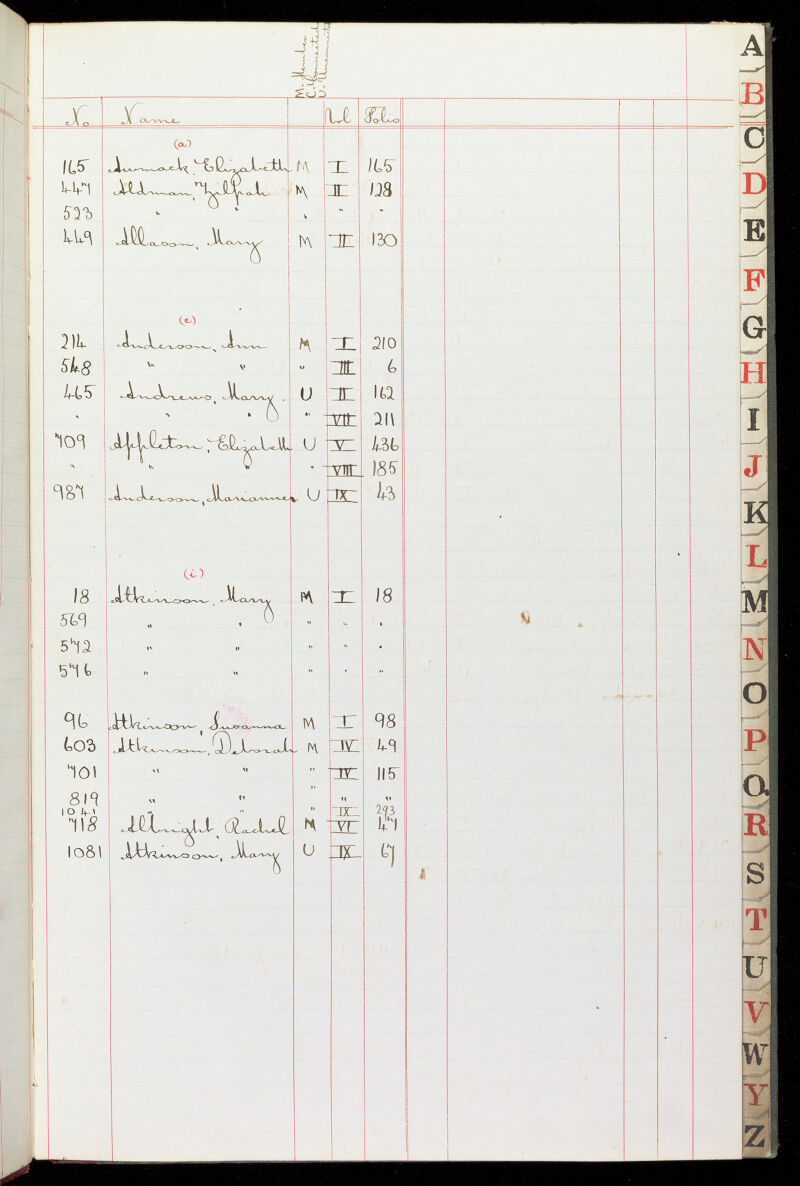 M. Member
C. Connected
U. Unconnected
No Name Vol Folio
(a)
165 Awmack, Elizabeth M I 165
447 Aldman, Zilpah M II 128
523 " " " " "
449 Allason, Mary M II 130
(e)
214 Anderson, Ann M I 210
548 " " " III 6
465 Andrews, Mary. U II 162
" " " " VII 211
709 Appleton, Elizabeth U V 436
" " " " VIII 185
987 Anderson, Marianne U IX 43
(i)
18 Atkinson, Mary M I 18
569 " " " " "
572 " " " " "
576 " " " " "
96 Atkinson, Susanna M I 98
603 Atkinson, Deborah M IV 49
701 " " " IV 115
819 " " " " "
1041 " " " IX 293
718 Albright, Rachel M VI 47
1081 Atkinson, Mary U IX 67
A
B
C
D
E
F
G
H
I
J
K
L
M
N
O
P
Q
R
S
T
U
V
W
Y
Z